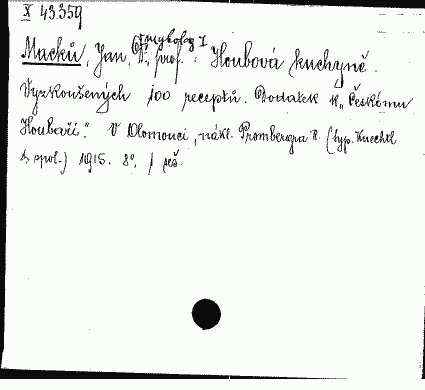 X 43.359
+mykolog I
Macků, Jan, Dr., prof.: Houbová kuchyně.
Vyzkoušených 100 receptů. Dodatek k „Českému
Houbaři“. V Olomouci, nákl. Prombergra R. (typ. Knechtl
& spol.) 1915. 8°. 1 seš.